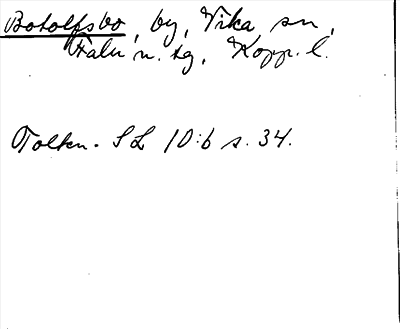 Botolfsbo, by, Vika sn,
Falu n. tg, Kopp. l.
Tolkn. SL 10:6 s. 34.